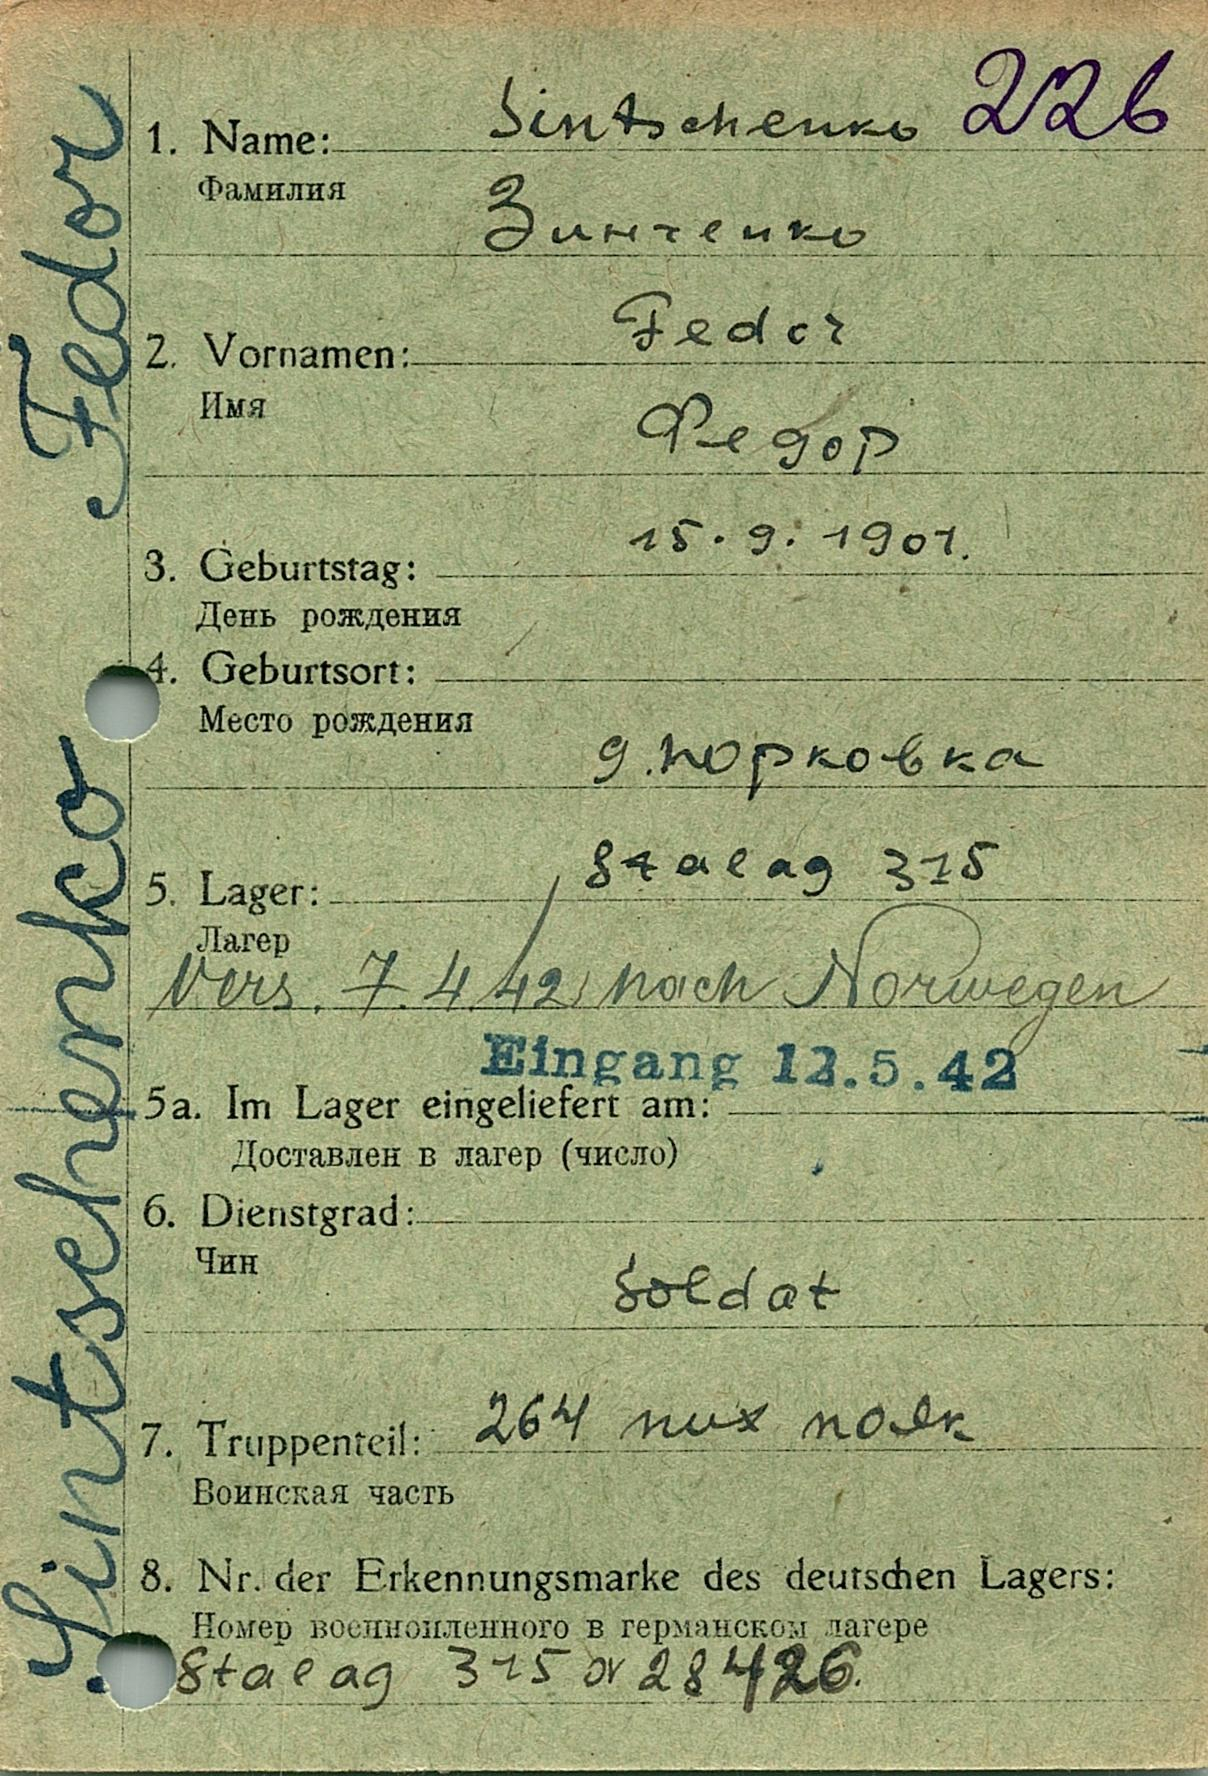 226
1. Name: Sintschenko
Фамилия
Зинченко
2. Vornamen: Fedor
Имя
Федор
3. Geburtstag: 15.9.1901.
День рождения
4. Geburtsort:
Место рождения
д. Юрковка
5. Lager: Stalag 315
Лагер
Vers. 7.4.42 nach Norwegen
Eingang 12.5.42
5a. Im Lager eingeliefert am:
Доставлен в лагер (число)
6. Dienstgrad:
Чин
Soldat
7. Truppenteil: 264 пих полк
Воинская часть
8. Nr. der Erkennungsmarke des deutschen Lagers:
Номер военнопленного в германском лагере
Stalag 315 28426.
Sintschenko Fedor